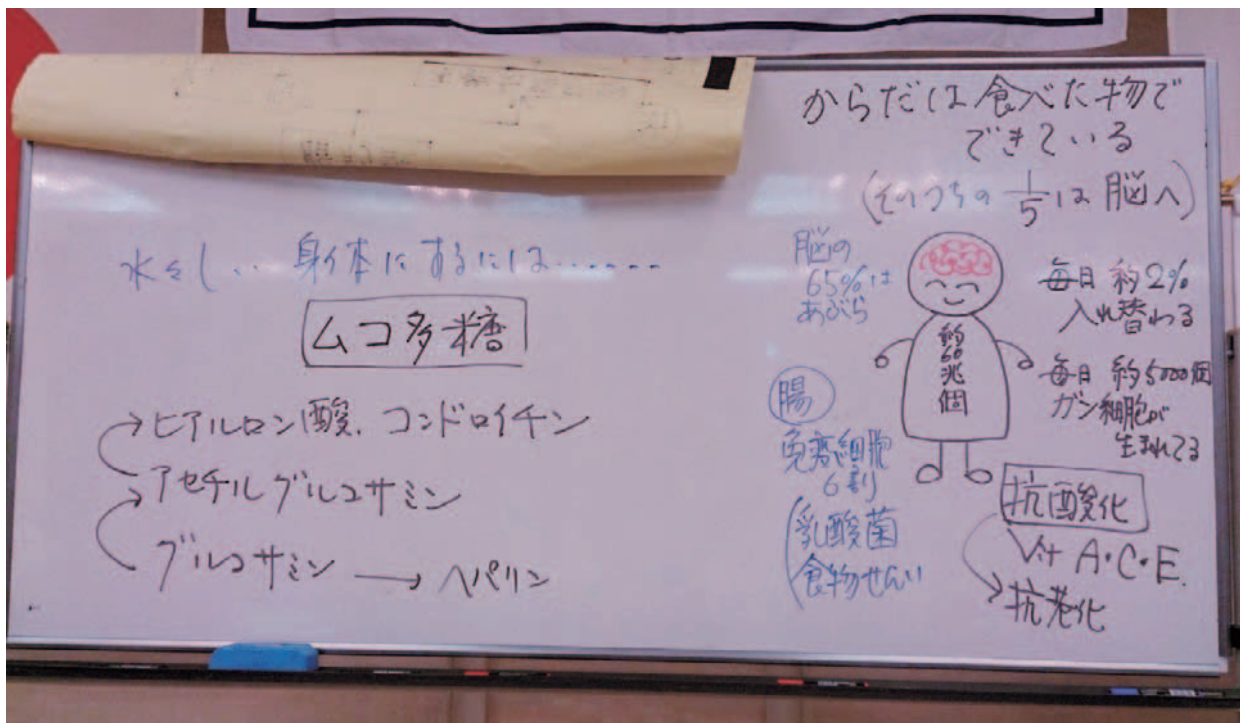 水々し‥身体にするには……
ムコ多糖
ヒアルロン酸、コンドロイチン
アセチルグルコサミン
グルコサミン→ヘパリン
からだは食べた物で
できている
(そのうちの1/5は脳へ)
脳の
65%は
あぶら
約60兆個
毎日 約2%
入れ替わる
毎日 約5000個
ガン細胞が
生まれてる
腸
免疫細胞
6割
乳酸菌
食物せんい
抗酸化
Vit A・C・E.
抗老化